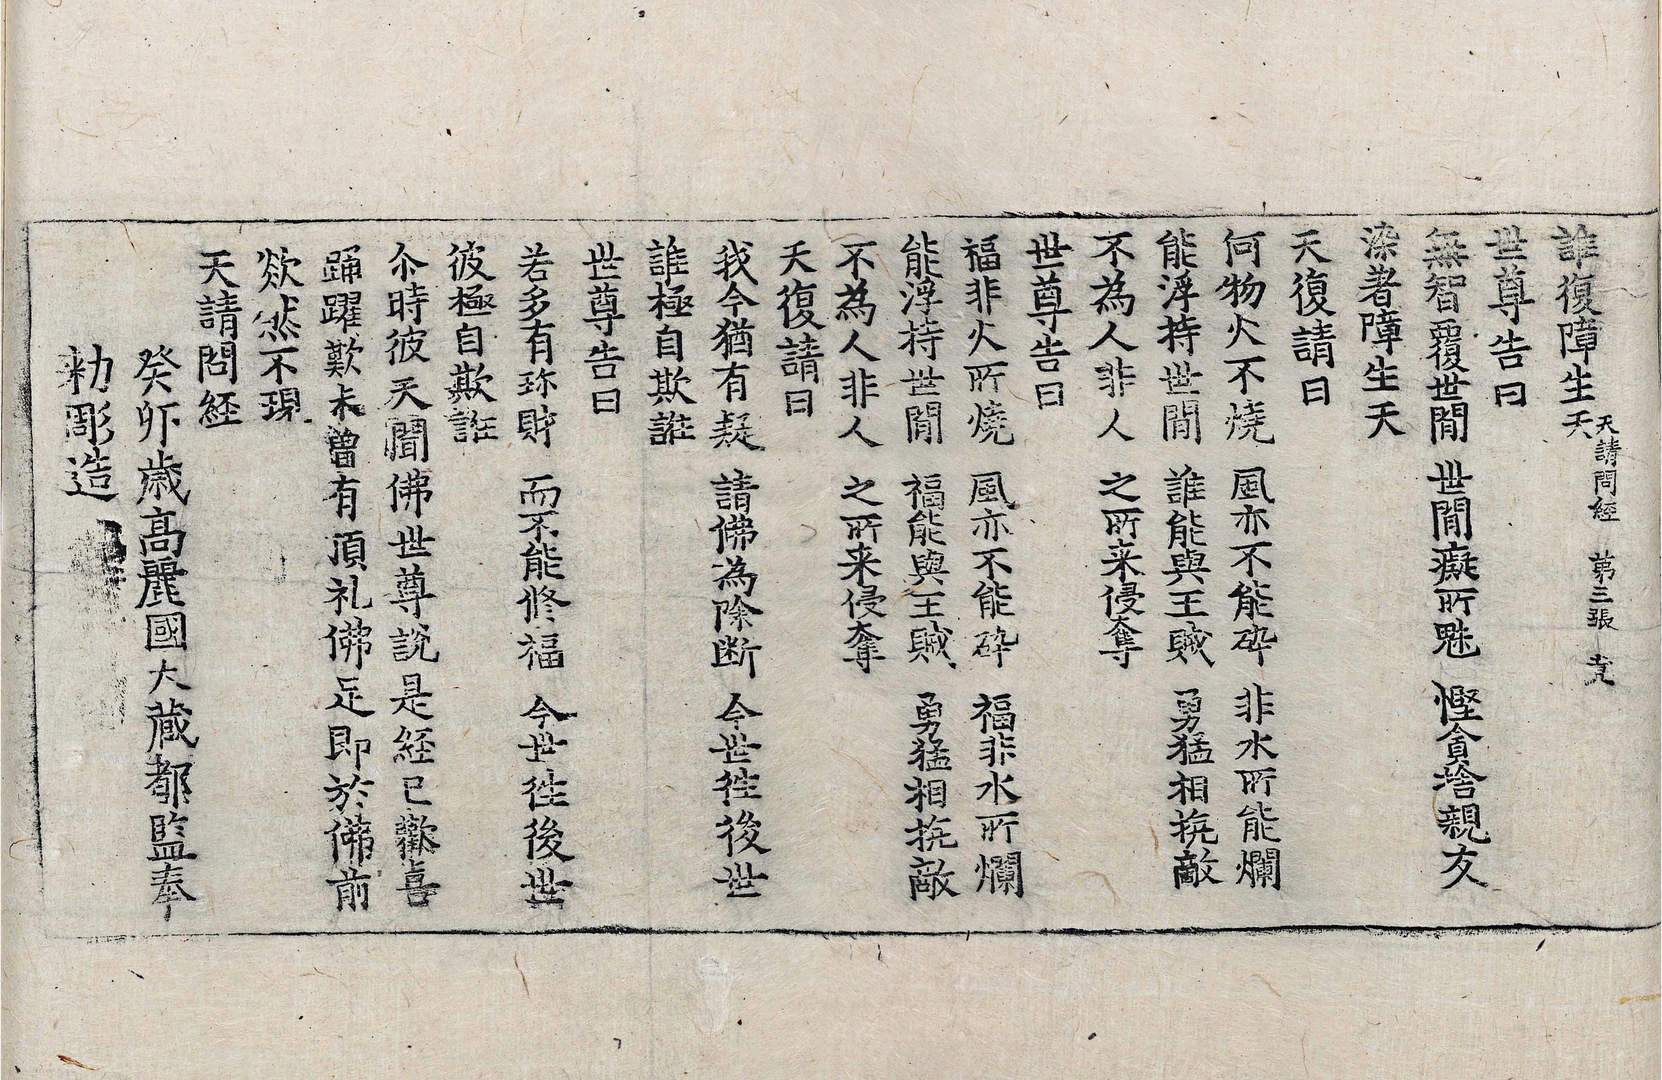 誰復障生天
天請問經 第三張 竟
世尊告曰
無智覆世間 世間癡所魅 慳貪捨親友
染著障生天
天復請曰
何物火不燒 風亦不能碎 非水所能爛
能浮持世間 誰能與王賊 勇猛相抗敵
不為人非人 之所来侵奪
世尊告曰
福非火所燒 風亦不能碎 福非水所爛
能浮持世間 福能與王賊 勇猛相抗敵
不為人非人 之所来侵奪
天復請曰
我今猶有疑 請佛為除断 今世徃後世
誰極自欺誑
世尊告曰
若多有珎財 而不能修福 今世徃後世
彼極自欺誑
尒時彼天聞佛世尊說是経已歡喜
踊躍歎未曾有頂礼佛足即於佛前
欻然不現
天請問経
癸卯歳高麗國大蔵都監奉
勑彫造